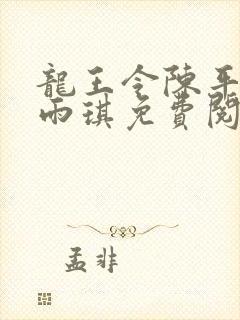 龍王令陳平
雨琪免費閱
孟非